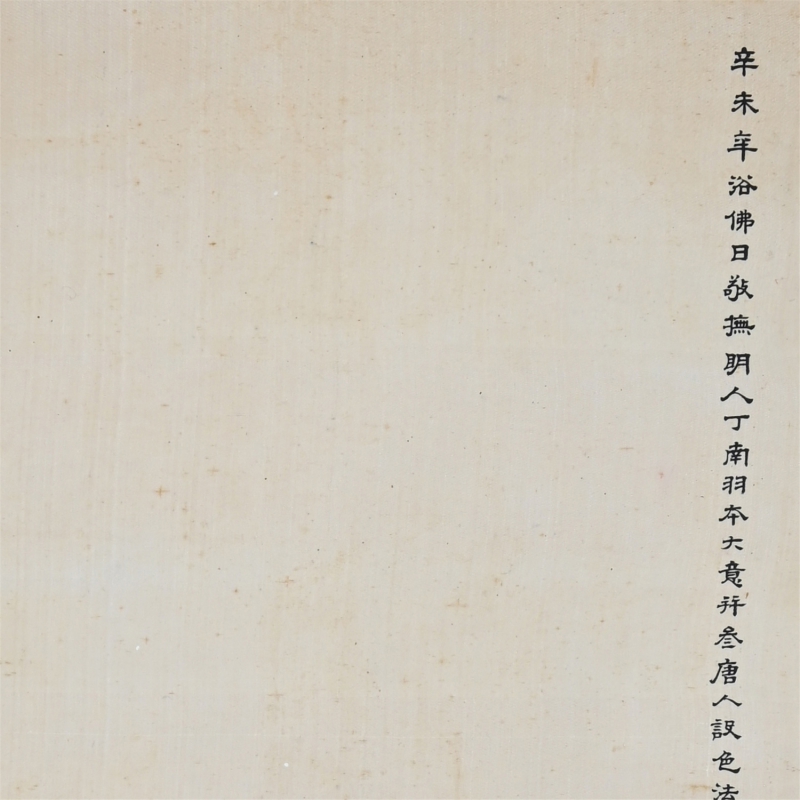 辛未年浴佛日敬撫明人丁南羽本大意并叅唐人設色法